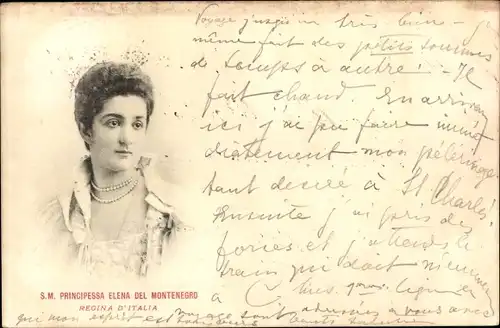 Voyage jusqu'ici très bien - j'ai
même fait des petits sommes
de temps à autre! - Il
fait chaud. En arrivant
ici j'ai pu faire immé
diatement mon pélerinage
tant desiré à St Charles!
Ensuite j'ai pris des
forces et j'attends le
train qui doit m'emmener
à
S. M. PRINCIPESSA ELENA DEL MONTENEGRO
REGINA D'ITALIA
voyage sont à vous avec
qui mon esprit est toujours